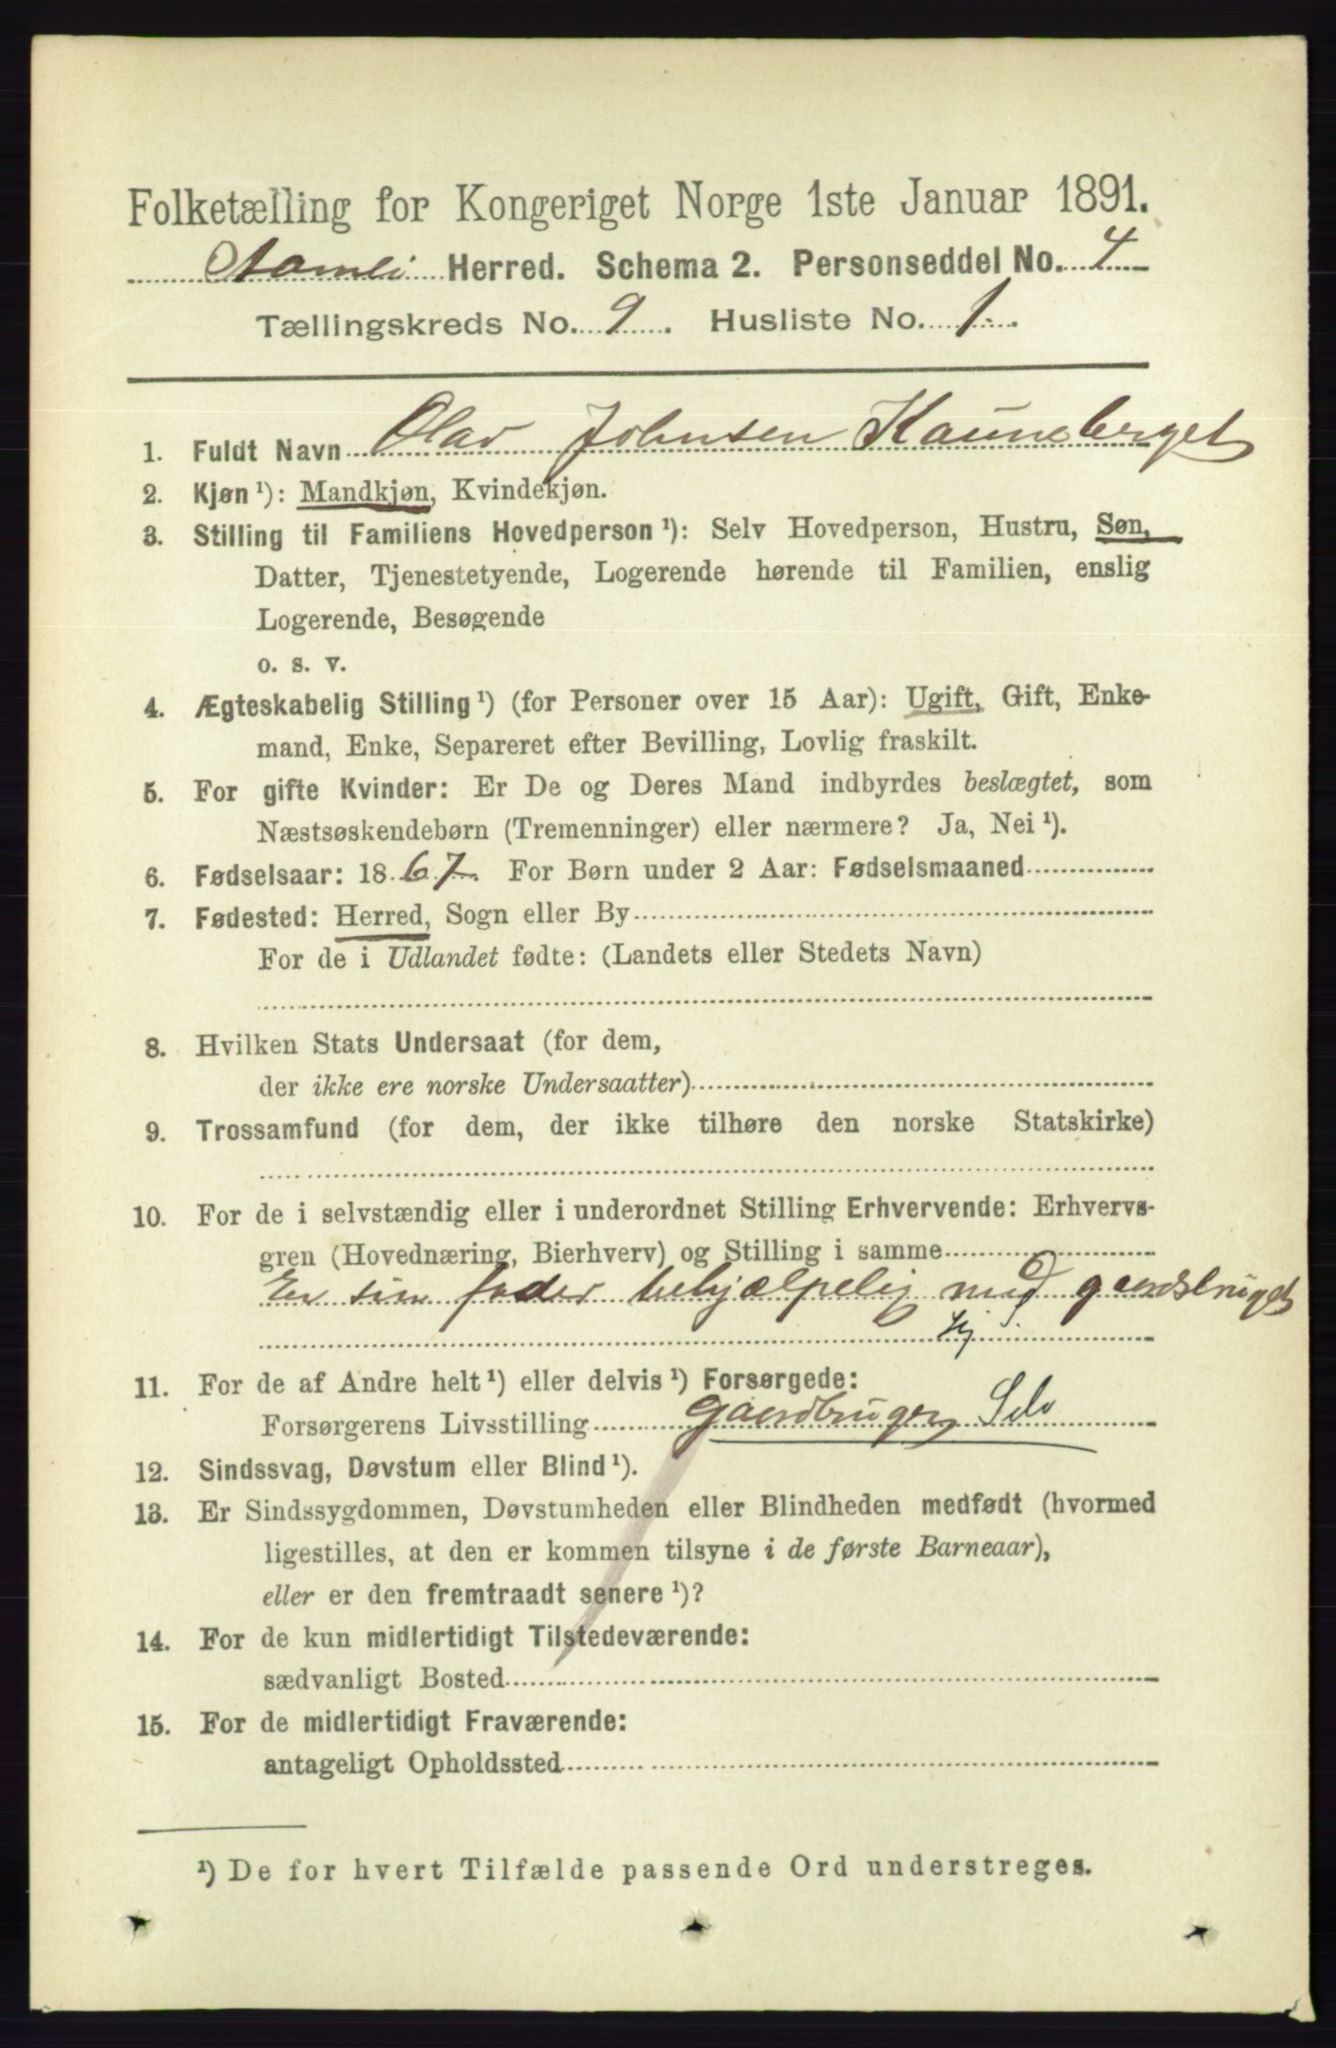 Folketælling for Kongeriget Norge 1ste Januar 1891.
Aamli Herred. Schema 2. Personseddel No. 4
Tællingskreds No. 9. Husliste No. 1.
1. Fuldt Navn Olav Johnsen Kauneberget
2. Kjøn ¹): Mandkjøn, Kvindekjøn.
3. Stilling til Familiens Hovedperson ¹): Selv Hovedperson, Hustru, Søn,
Datter, Tjenestetyende, Logerende hørende til Familien, enslig
Logerende, Besøgende
o. s. v.
4. Ægteskabelig Stilling ¹) (for Personer over 15 Aar): Ugift, Gift, Enke-
mand, Enke, Separeret efter Bevilling, Lovlig fraskilt.
5. For gifte Kvinder: Er De og Deres Mand indbyrdes beslægtet, som
Næstsøskendebørn (Tremenninger) eller nærmere? Ja, Nei ¹).
6. Fødselsaar: 1867. For Børn under 2 Aar: Fødselsmaaned
7. Fødested: Herred, Sogn eller By
For de i Udlandet fødte: (Landets eller Stedets Navn)
8. Hvilken Stats Undersaat (for dem,
der ikke ere norske Undersaatter)
9. Trossamfund (for dem, der ikke tilhøre den norske Statskirke)
10. For de i selvstændig eller i underordnet Stilling Erhvervende: Erhvervs-
gren (Hovednæring, Bierhverv) og Stilling i samme
Er sin fader behjælpelig med gaardsbruget
11. For de af Andre helt ¹) eller delvis ¹) Forsørgede:
Forsørgerens Livsstilling gaardbruger, Selv
12. Sindssvag, Døvstum eller Blind ¹).
13. Er Sindssygdommen, Døvstumheden eller Blindheden medfødt (hvormed
ligestilles, at den er kommen tilsyne i de første Barneaar),
eller er den fremtraadt senere ¹)?
14. For de kun midlertidigt Tilstedeværende:
sædvanligt Bosted
15. For de midlertidigt Fraværende:
antageligt Opholdssted
¹) De for hvert Tilfælde passende Ord understreges.